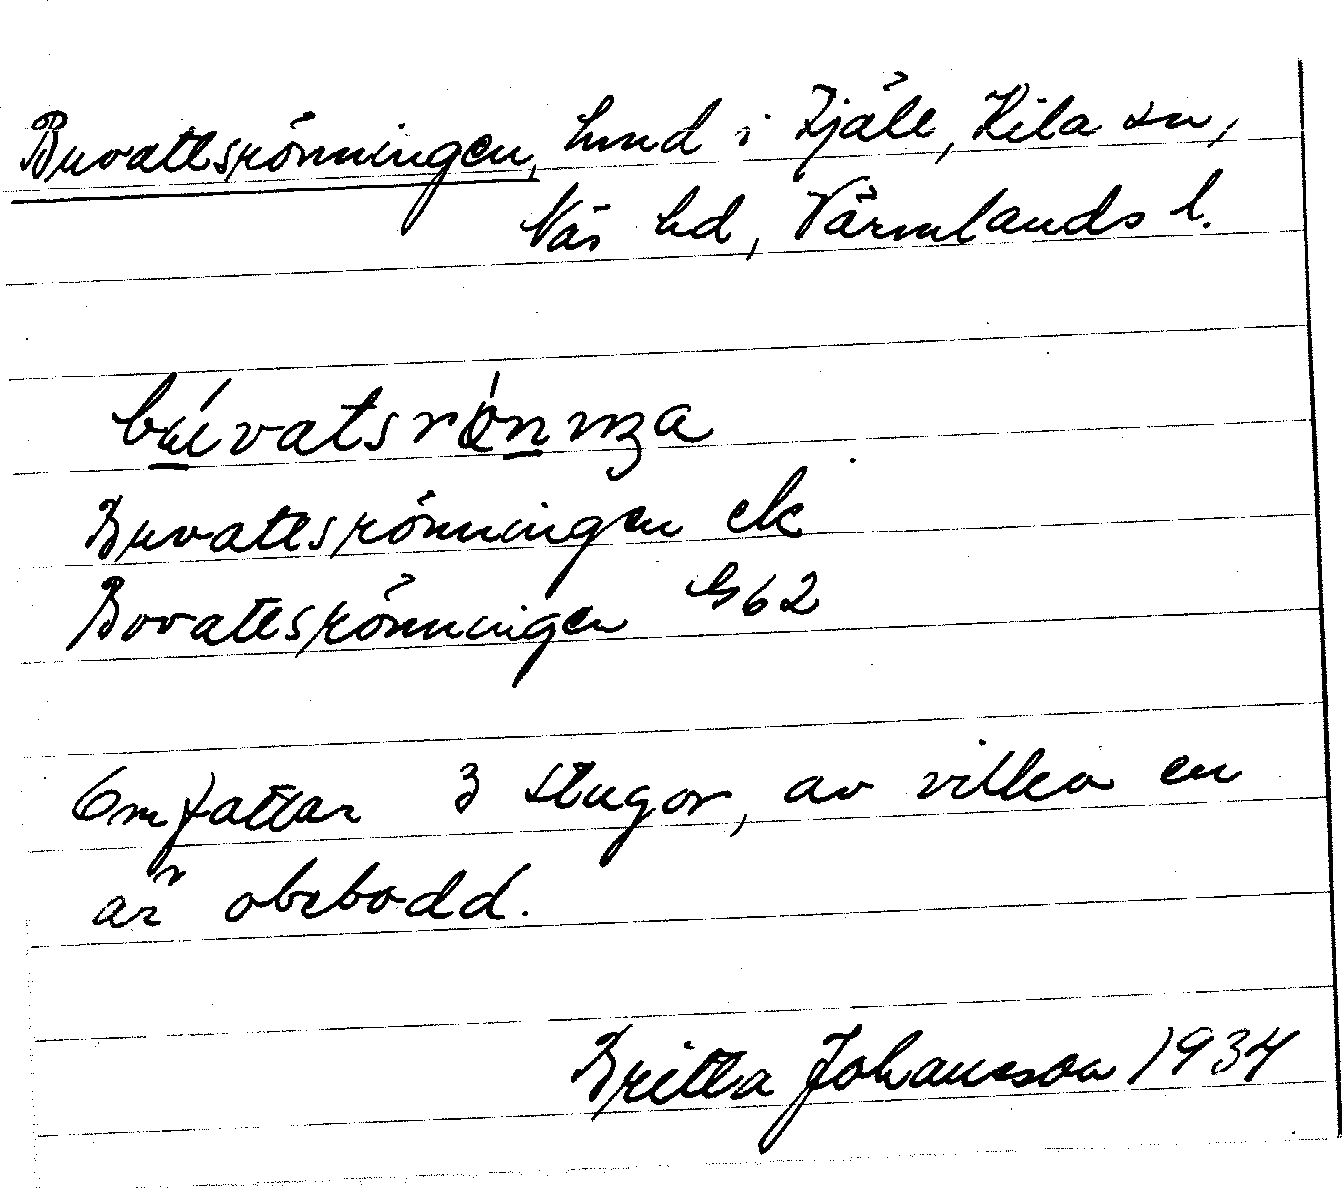 Buvattsrönningen, hmd i Fjäle, Kila sn,
Näs hd, Värmlands l.
Buvattsrönningen ek
Bovattsrönningen G62
Omfattar 3 stugor, av vilka en
är obebodd.
Britta Johansson 1934